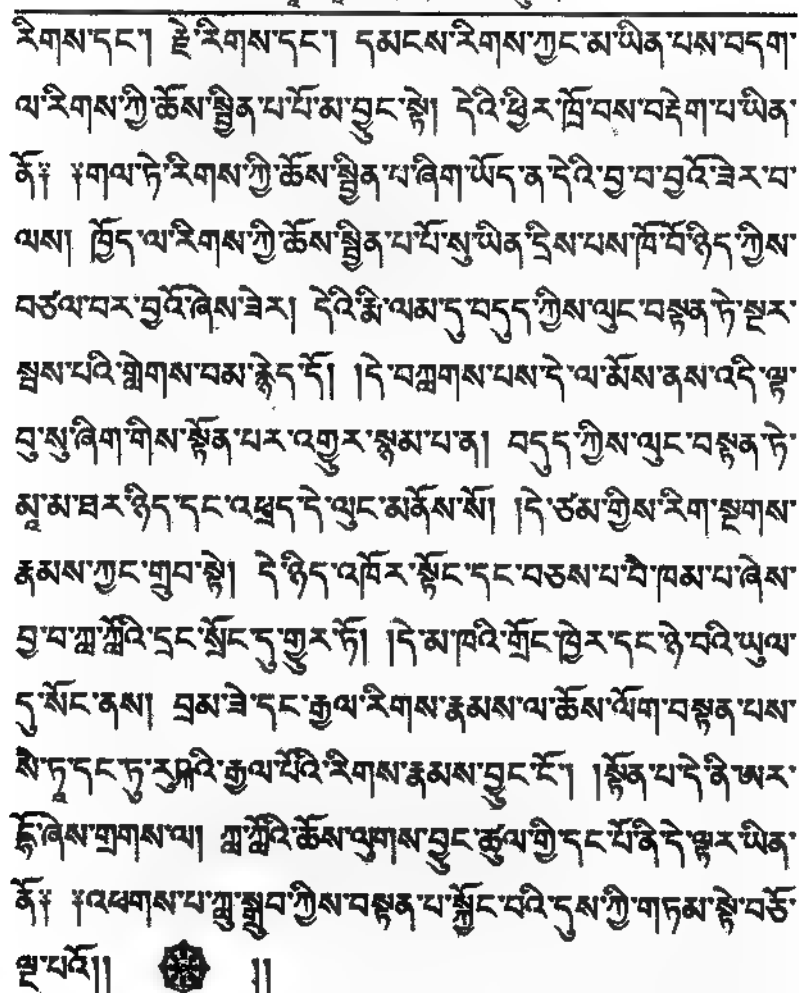 རིགས་དང་། རྗེ་རིགས་དང་། དམངས་རིགས་ཀྱང་མ་ཡིན་པས་བདག་
ལ་རིགས་ཀྱི་ཆོས་སྦྱིན་པ་པོ་མ་བྱུང་སྟེ། དེའི་ཕྱིར་ཁྲོ་བས་བརྡེག་པ་ཡིན་
ནོ༔ ༔གལ་ཏེ་རིགས་ཀྱི་ཆོས་སྦྱིན་པ་ཞིག་ཡོད་ན་དེའི་བྱ་བ་བྱའོ་ཟེར་བ་
ལས། ཁྱོད་ལ་རིགས་ཀྱི་ཆོས་སྦྱིན་པ་པོ་སུ་ཡིན་དྲིས་པས་ཁོ་བོ་ཉིད་ཀྱིས་
བཙལ་བར་བྱའོ་ཞེས་ཟེར། དེའི་རྨི་ལམ་དུ་བདུད་ཀྱིས་ལུང་བསྟན་ཏེ་སྔར་
སྦས་པའི་གླེགས་བམ་རྙེད་དོ། །དེ་བཀླགས་པས་དེ་ལ་མོས་ནས་འདི་ལྟ་
བུ་སུ་ཞིག་གིས་སྟོན་པར་འགྱུར་སྙམ་པ་ན། བདུད་ཀྱིས་ལུང་བསྟན་ཏེ་
མཱ་མ་ཐར་ཉིད་དང་འཕྲད་དེ་ལུང་མནོས་སོ། །དེ་ཙམ་གྱིས་རིག་སྔགས་
རྣམས་ཀྱང་གྲུབ་སྟེ། དེ་ཉིད་འཁོར་སྟོང་དང་བཅས་པ་བེ་ཁམ་པ་ཞེས་
བྱ་བ་ཀླ་ཀློའི་དྲང་སྲོང་དུ་གྱུར་ཏོ། །དེ་མ་ཁའི་གྲོང་ཁྱེར་དང་ཉེ་བའི་ཡུལ་
དུ་སོང་ནས། བྲམ་ཟེ་དང་རྒྱལ་རིགས་རྣམས་ལ་ཆོས་ལོག་བསྟན་པས་
སེ་ཏཱ་དང་ཏུ་རུཥྐའི་རྒྱལ་པོའི་རིགས་རྣམས་བྱུང་ངོ་། །སྟོན་པ་དེ་ནི་ཨར་
དྷོ་ཞེས་གྲགས་ལ། ཀླ་ཀློའི་ཆོས་ལུགས་བྱུང་ཚུལ་གྱི་དང་པོ་ནི་དེ་ལྟར་ཡིན་
ནོ༔ ༔འཕགས་པ་ཀླུ་སྒྲུབ་ཀྱིས་བསྟན་པ་སྐྱོང་བའི་དུས་ཀྱི་གཏམ་སྟེ་བཅོ་
ལྔ་པའོ།། །།